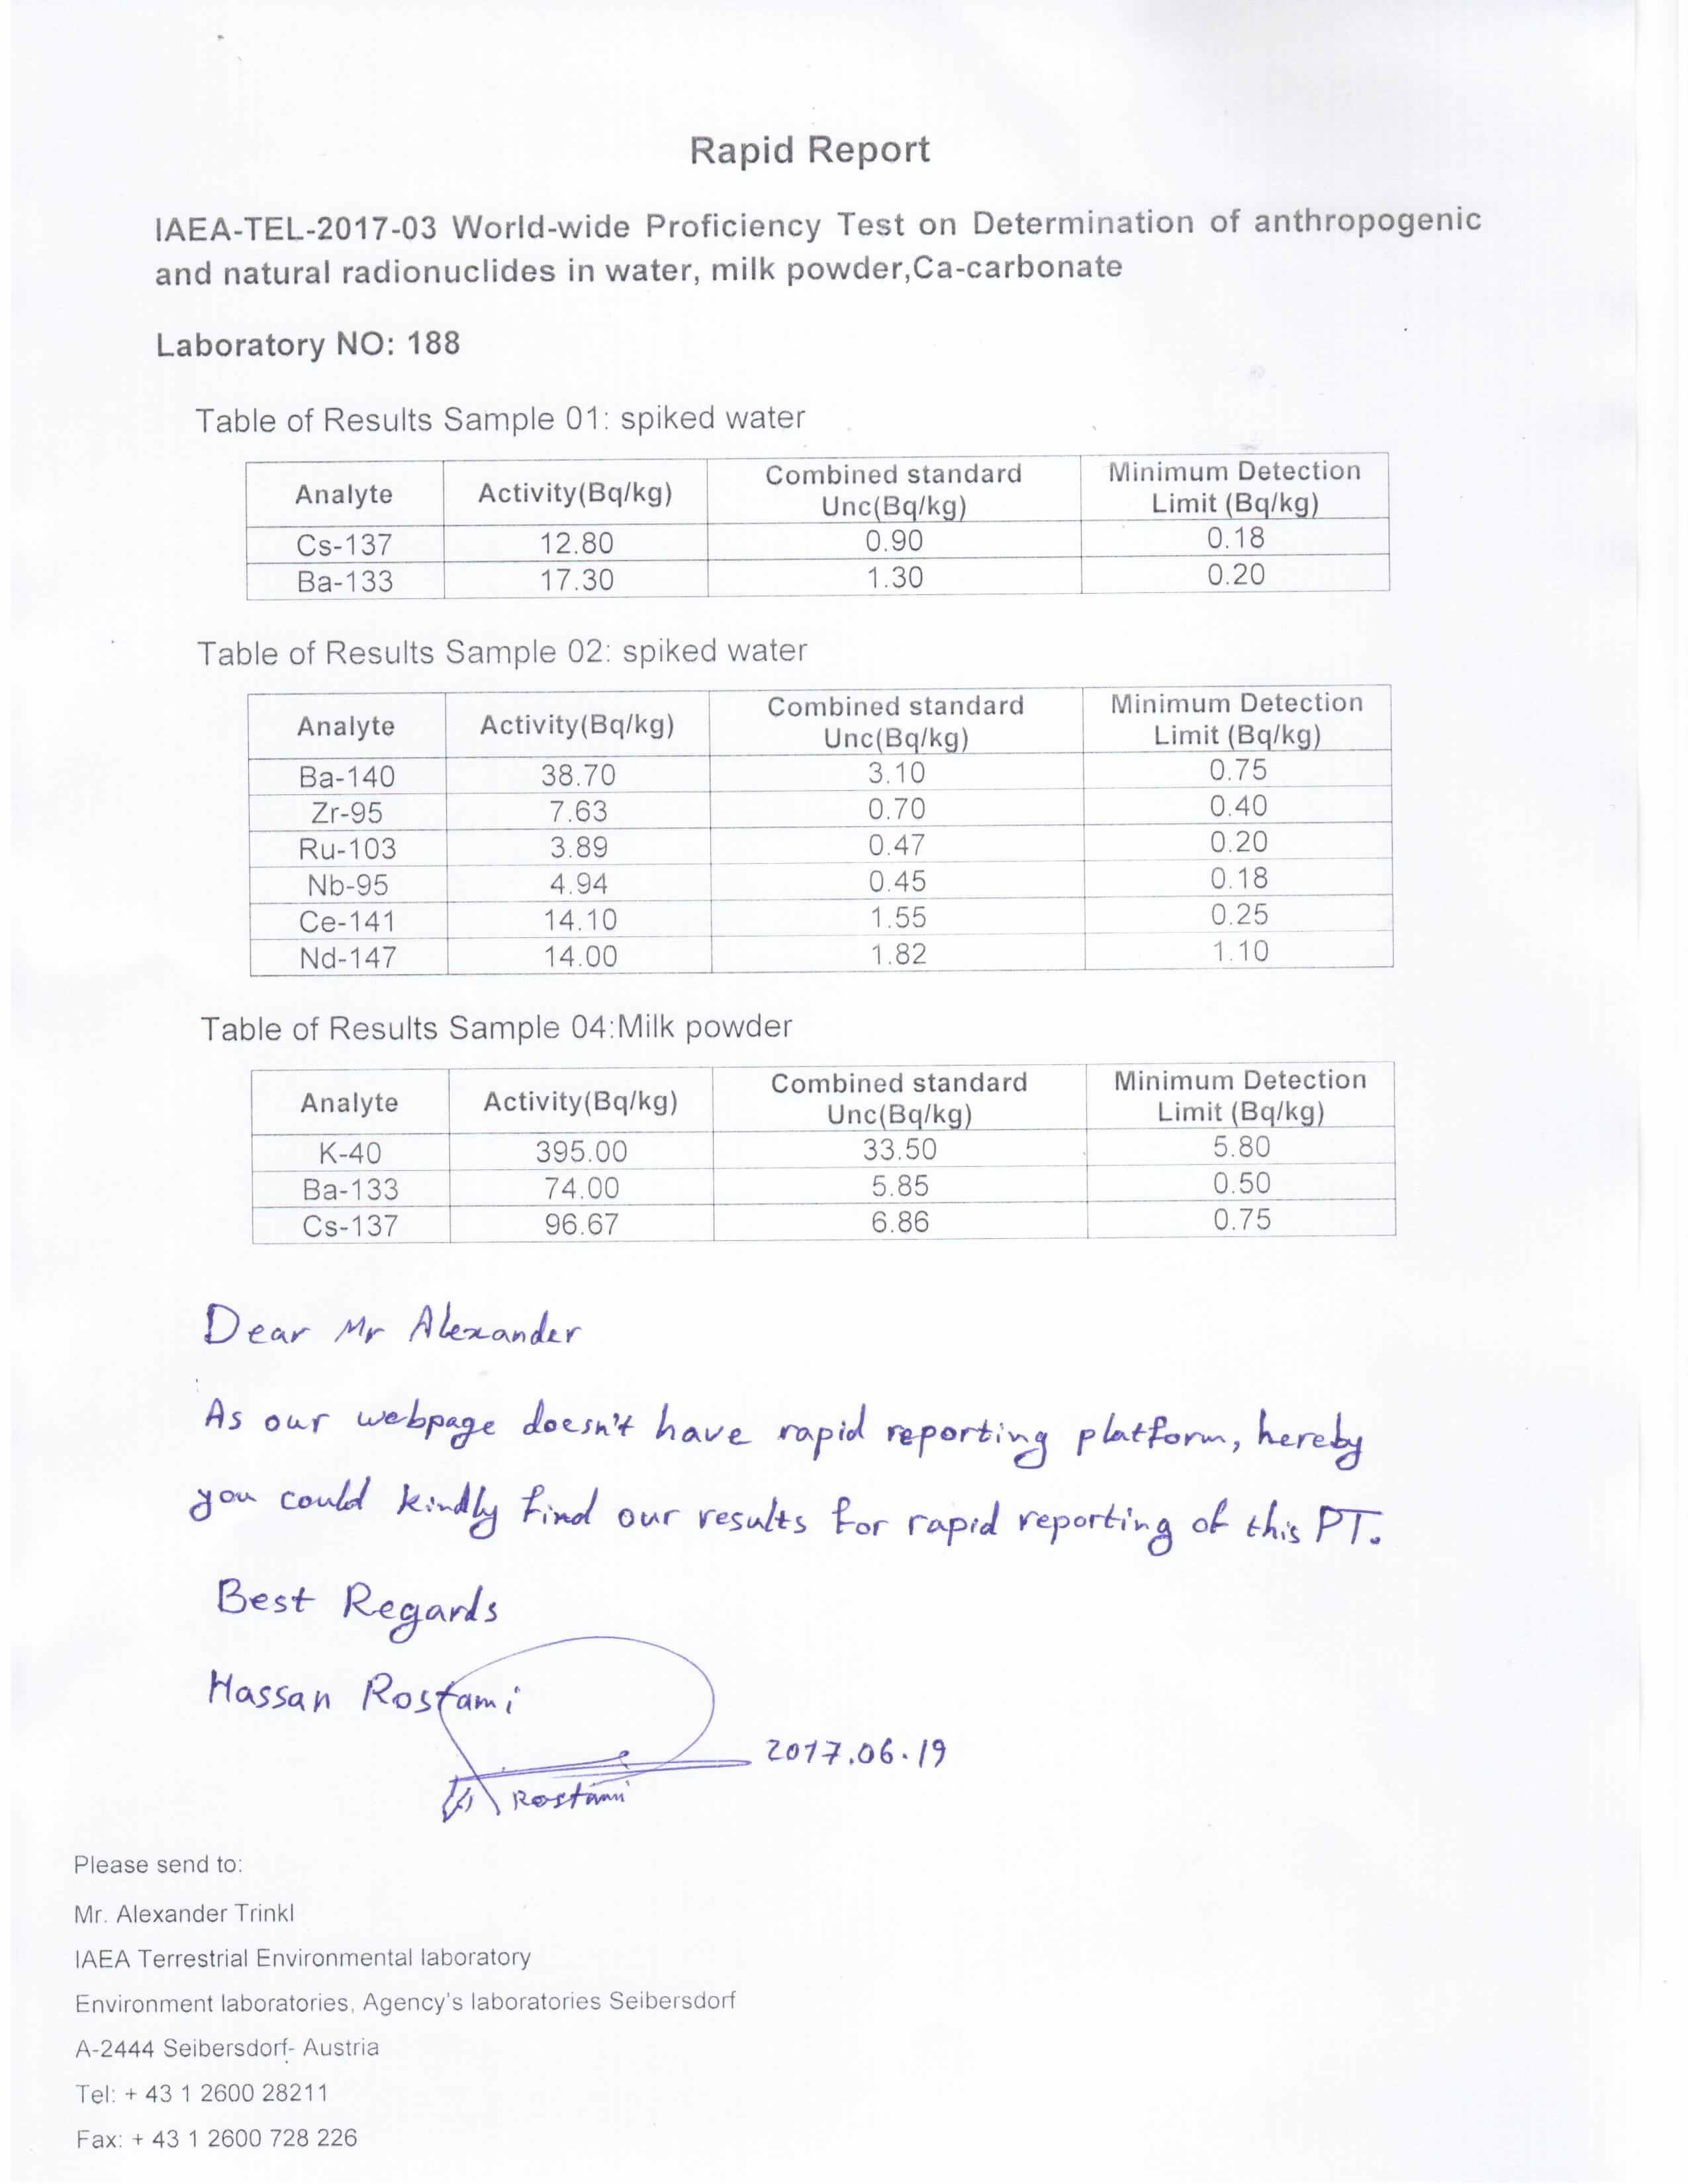 Rapid Report
IAEA-TEL-2017-03 World-wide Proficiency Test on Determination of anthropogenic
and natural radionuclides in water, milk powder,Ca-carbonate
Laboratory NO: 188
Table of Results Sample 01: spiked water
Analyte Activity(Bq/kg) Combined standard Unc(Bq/kg) Minimum Detection Limit (Bq/kg)
Cs-137 12.80 0.90 0.18
Ba-133 17.30 1.30 0.20
Table of Results Sample 02: spiked water
Analyte Activity(Bq/kg) Combined standard Unc(Bq/kg) Minimum Detection Limit (Bq/kg)
Ba-140 38.70 3.10 0.75
Zr-95 7.63 0.70 0.40
Ru-103 3.89 0.47 0.20
Nb-95 4.94 0.45 0.18
Ce-141 14.10 1.55 0.25
Nd-147 14.00 1.82 1.10
Table of Results Sample 04:Milk powder
Analyte Activity(Bq/kg) Combined standard Unc(Bq/kg) Minimum Detection Limit (Bq/kg)
K-40 395.00 33.50 5.80
Ba-133 74.00 5.85 0.50
Cs-137 96.67 6.86 0.75
Dear Mr Alexander
As our webpage doesn't have rapid reporting platform, hereby
you could kindly find our results for rapid reporting of this PT.
Best Regards
Hassan Rostami
2017.06.19
Rostami
Please send to:
Mr. Alexander Trinkl
IAEA Terrestrial Environmental laboratory
Environment laboratories, Agency's laboratories Seibersdorf
A-2444 Seibersdorf- Austria
Tel: + 43 1 2600 28211
Fax: + 43 1 2600 728 226